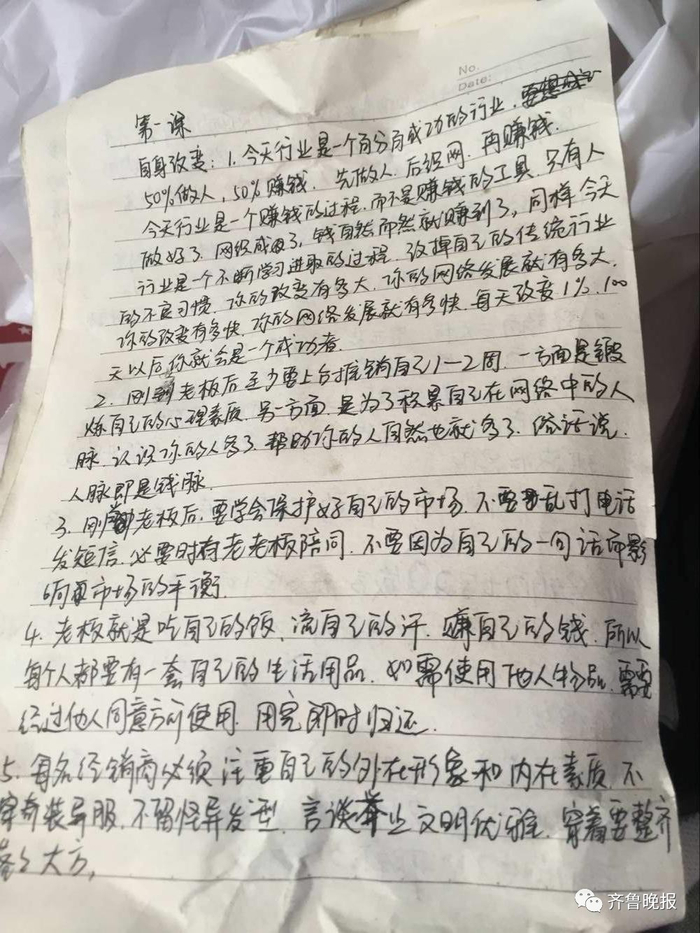 No.
Date:
第一课
自身改变：1.今天行业是一个百分百成功的行业，
50%做人，50%赚钱．先做人．后织网．再赚钱．
今天行业是一个赚钱的过程．而不是赚钱的工具．只有人
做好了．网络成了，钱自然而然就赚到了，同样今天
行业是一个不断学习进取的过程．改掉自己的传统行业
的不良习惯．你的改变有多大．你的网络发展就有多大．
你的改变有多快．你的网络发展就有多快．每天改变1%．100
天以后你就会是一个成功者．
2．刚到老板后至少要上台推销自己1－2周．一方面是锻
炼自己的心理素质．另一方面．是为了积累自己在网络中的人
脉．认识你的人多了．帮助你的人自然也就多了．俗话说．
人脉即是钱脉．
3．刚老板后，要学会保护好自己的市场．不要乱打电话
发短信．必要时有老老板陪同．不要因为自己的一句话而影
响市场的平衡．
4．老板就是吃自己的饭、流自己的汗．赚自己的钱．所以
每个人都要有一套自己的生活用品．如需使用他人物品．需
经过他人同意方可使用．用完即时归还．
5．每名经销商必须注重自己的外在形象和内在素质．不
穿奇装异服．不留怪异发型．言谈举止文明优雅．穿着要整齐
大方．
齐鲁晚报